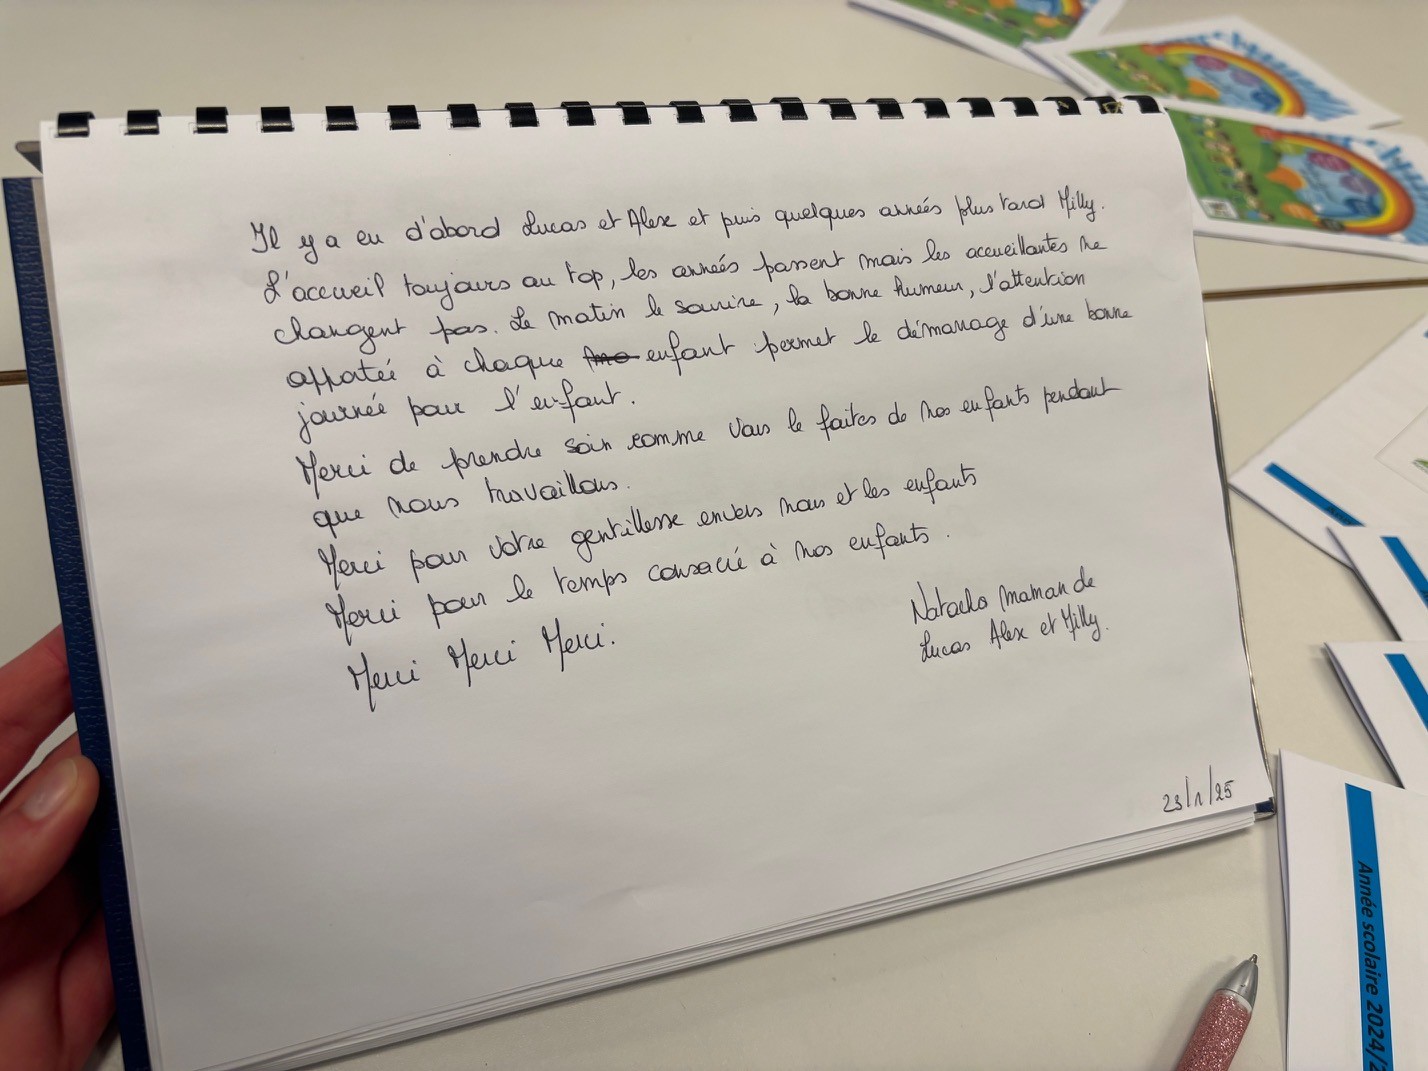 Il y a eu d'abord Lucas et Alex et puis quelques années plus tard Milly.
L'accueil toujours au top, les années passent mais les accueillantes ne
changent pas. Le matin le sourire, la bonne humeur, l'attention
apportée à chaque enfant permet le démarrage d'une bonne
journée pour l'enfant.
Merci de prendre soin comme vous le faites de nos enfants pendant
que nous travaillons.
Merci pour votre gentillesse envers nous et les enfants
Merci pour le temps consacré à nos enfants.
Merci Merci Merci.
Natacha maman de
Lucas Alex et Milly.
23/1/25
Année scolaire 2024/2